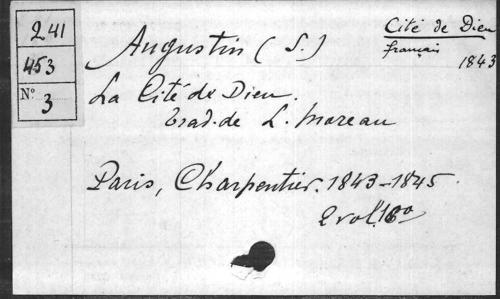 241
453
N° 3
Cité de Dieu
français
1843
Augustin (S.)
La Cité de Dieu.
Trad. de L. Moreau
Paris, Charpentier. 1843-1845.
2 vol. 16°